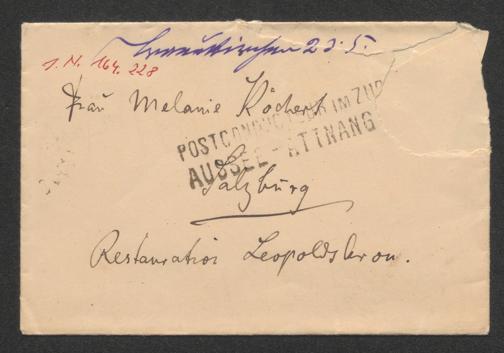 Traunkirchen 23.5.
J. N. 164.228
Frau Melanie Köchert
POSTCONDUCTEUR IM ZUG
AUSSEE-ATTNANG
Salzburg
Restauration Leopoldskron.